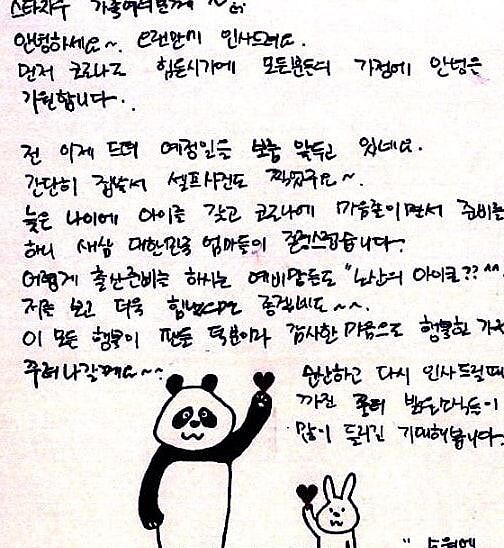 안녕하세요~. 오랜만에 인사드려요.
먼저 코로나로 힘든시기에 모든분들의 가정에 안녕을
기원합니다..
전 이제 드뎌 예정일을 보름 앞두고 있네요.
간단히 집에서 셀프사진도 찍었구요~.
늦은 나이에 아이를 갖고 코로나에 마음졸이면서 준비를
하니 새삼 대한민국 엄마들이 존경스럽습니다.
어렵게 출산준비를 하시는 예비맘들도 "노산의 아이콘?? ^^
저를 보고 더욱 힘내시면 좋겠네요~~.
이 모든 행복이 팬들 덕분이라 감사한 마음으로 행복한 가정
꾸려나갈께요~~
순산하고 다시 인사드릴때
까진 좋은
많이 들리길 기대해봅니다.